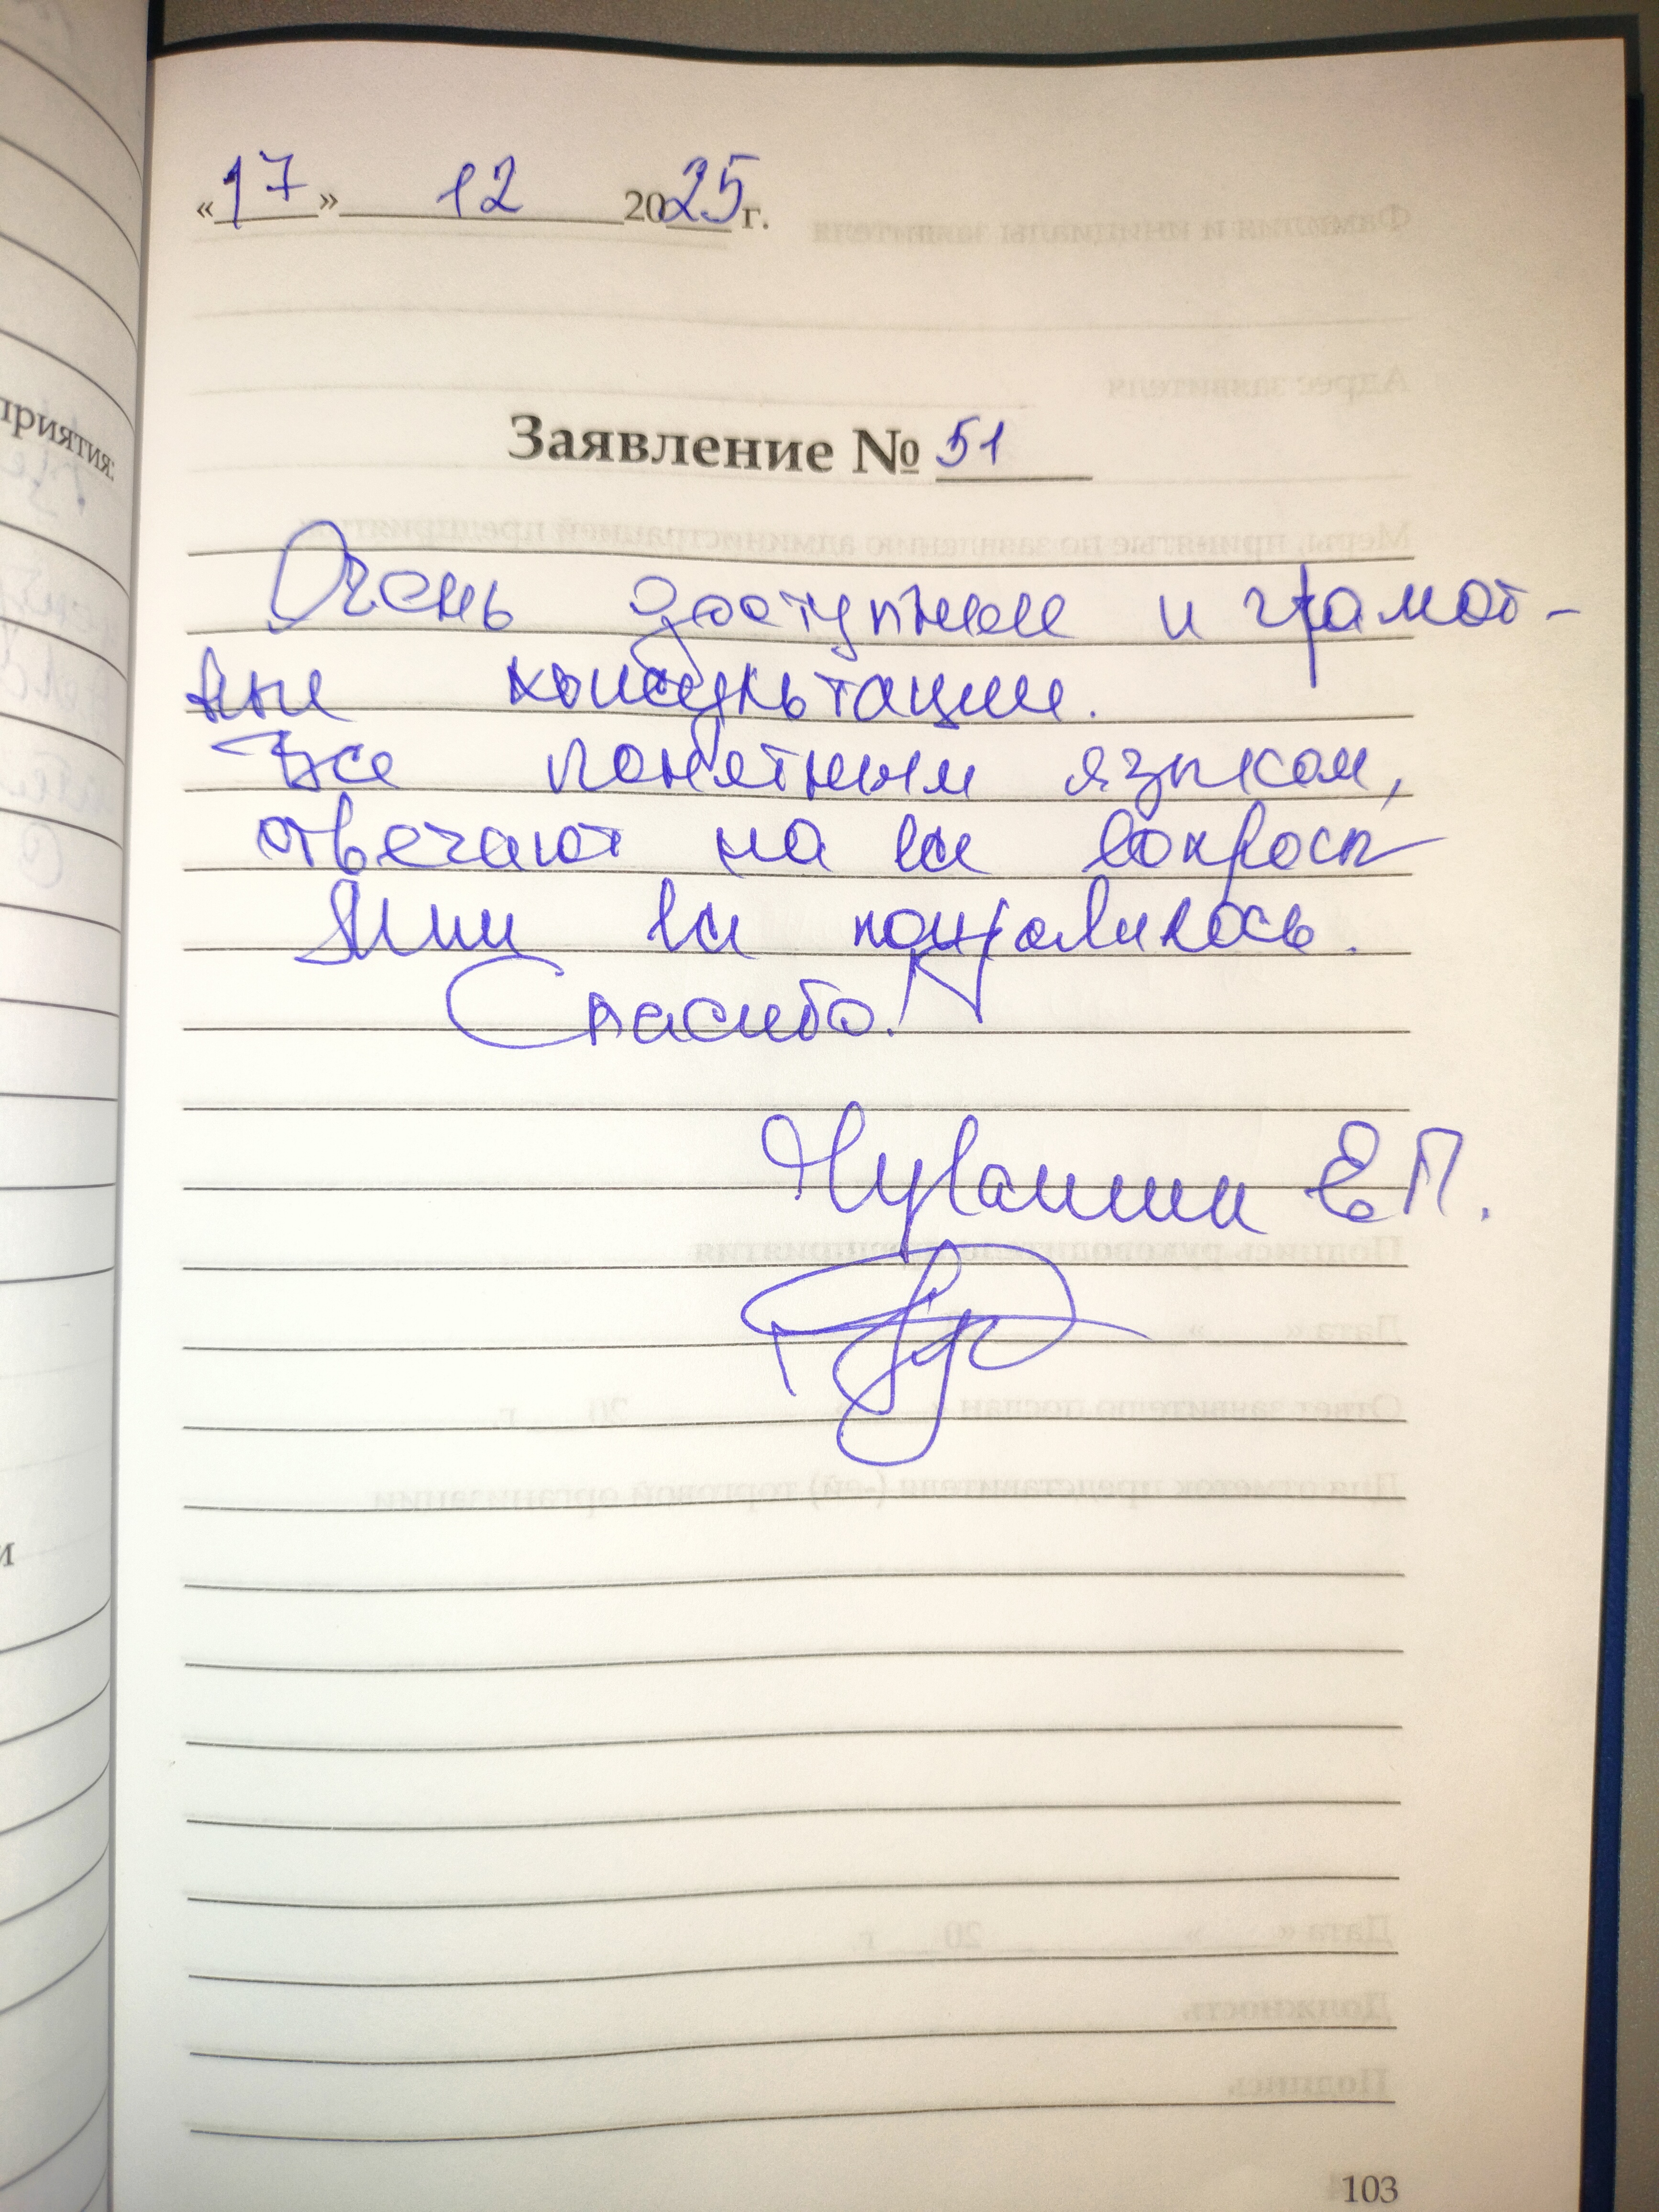 приятия:
и
«17» 12 2025 г.
Заявление № 51
Очень доступные и грамот-
ные консультации.
Все понятным языком,
отвечают на все вопросы
Мне все понравилось.
Спасибо!
Е.П.
103